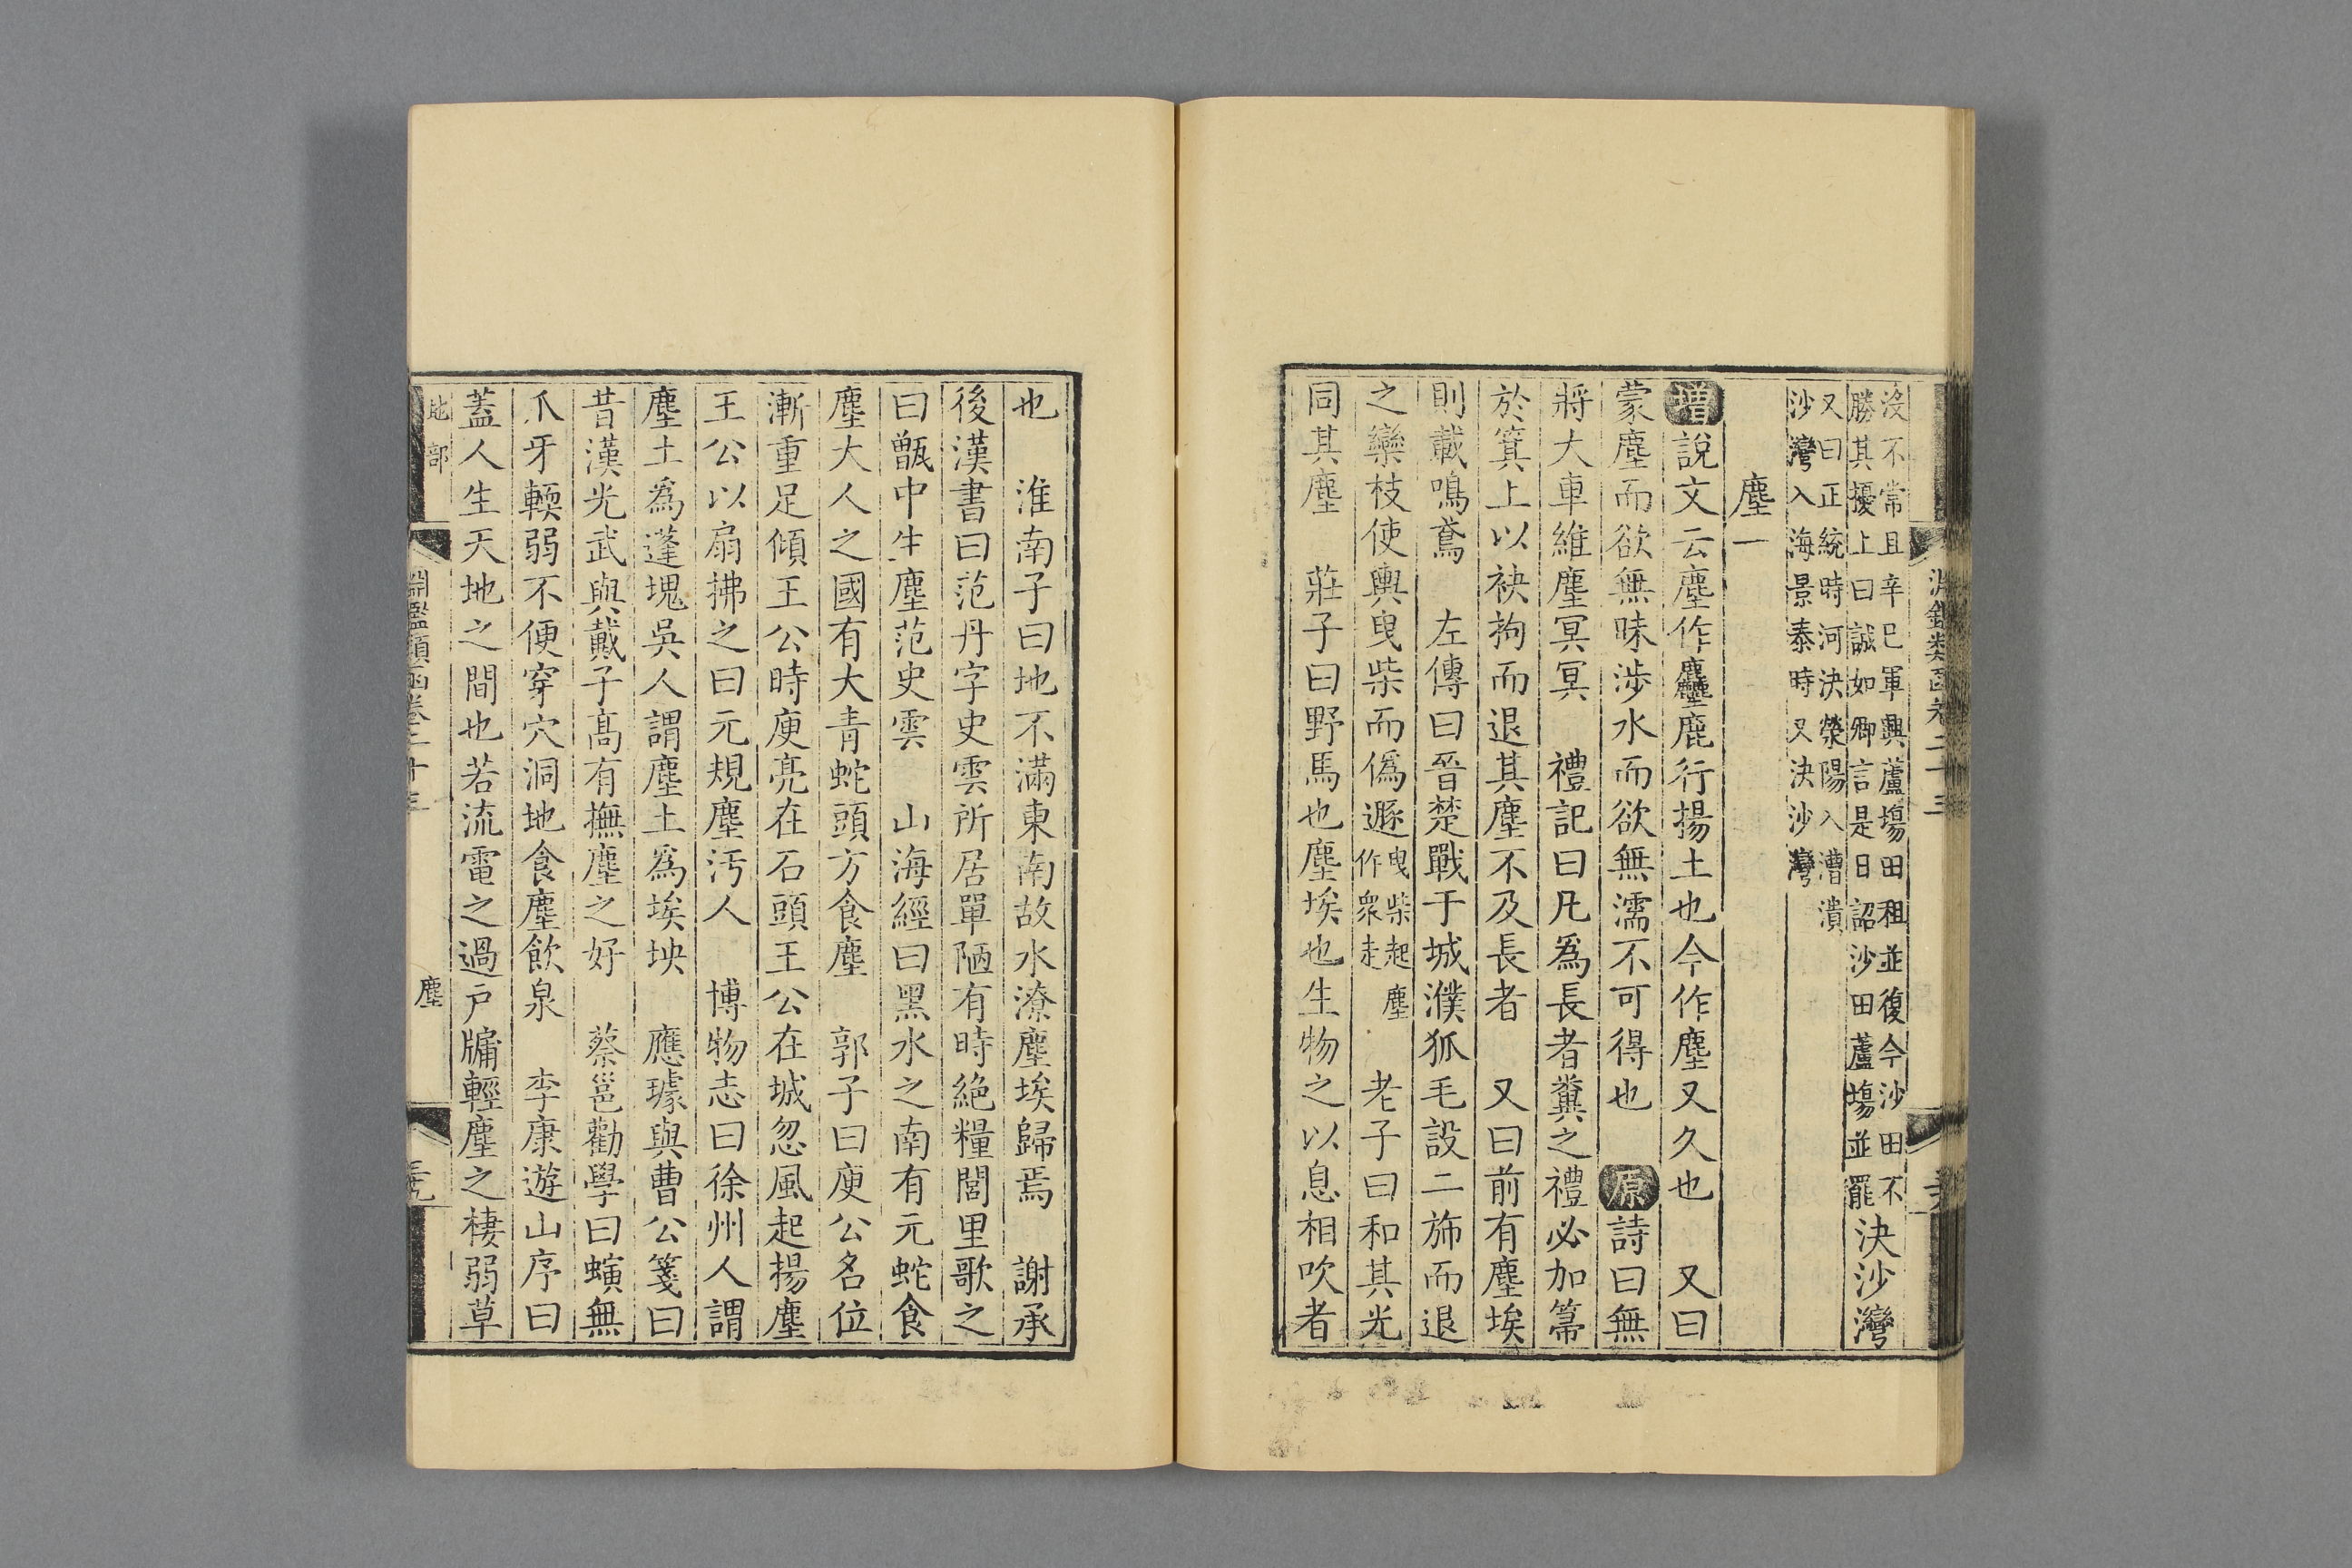 沒不常且辛巳軍興蘆塲田租並復今沙田不
勝其擾上曰誠如卿言是日詔沙田蘆塲並罷
決沙灣
又曰正統時河決滎陽入漕潰
沙灣入海景泰時又決沙灣
塵一
增說文云塵作麤鹿行揚土也今作塵又久也　又曰
蒙塵而欲無眛涉水而欲無濡不可得也　原詩曰無
將大車維塵冥冥　禮記曰凡爲長者糞之禮必加箒
於箕上以袂拘而退其塵不及長者　又曰前有塵埃
則載鳴鳶　左傳曰晉楚戰于城濮狐毛設二斾而退
之欒枝使輿曳柴而僞遯曳柴起塵作衆走　老子曰和其光
同其塵　莊子曰野馬也塵埃也生物之以息相吹者
也　淮南子曰地不滿東南故水潦塵埃歸焉　謝承
後漢書曰范丹字史雲所居單陋有時絶糧閭里歌之
曰甑中生塵范史雲　山海經曰黑水之南有元蛇食
塵大人之國有大青蛇頭方食塵　郭子曰庾公名位
漸重足傾王公時庾亮在石頭王公在城忽風起揚塵
王公以扇拂之曰元規塵汚人　博物志曰徐州人謂
塵土爲蓬塊吳人謂塵土爲埃坱　應璩與曹公箋曰
昔漢光武與戴子髙有撫塵之好　蔡邕勸學曰螾無
爪牙輭弱不便穿穴洞地食塵飲泉　李康遊山序曰
蓋人生天地之間也若流電之過戸牖輕塵之棲弱草
淵鑑類函卷二十三
塵